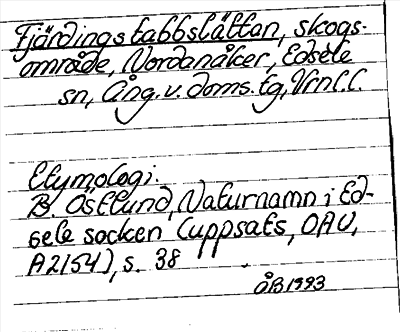 Fjärdingstabbslåttan, skogs-
område, Nordanåker, Edsele
sn, Ång. v. doms. tg, Vrnl. l.
Etymologi:
B. Östlund, Naturnamn i Ed-
sele socken (uppsats, DAU,
A2154), s. 38
ÅB 1993